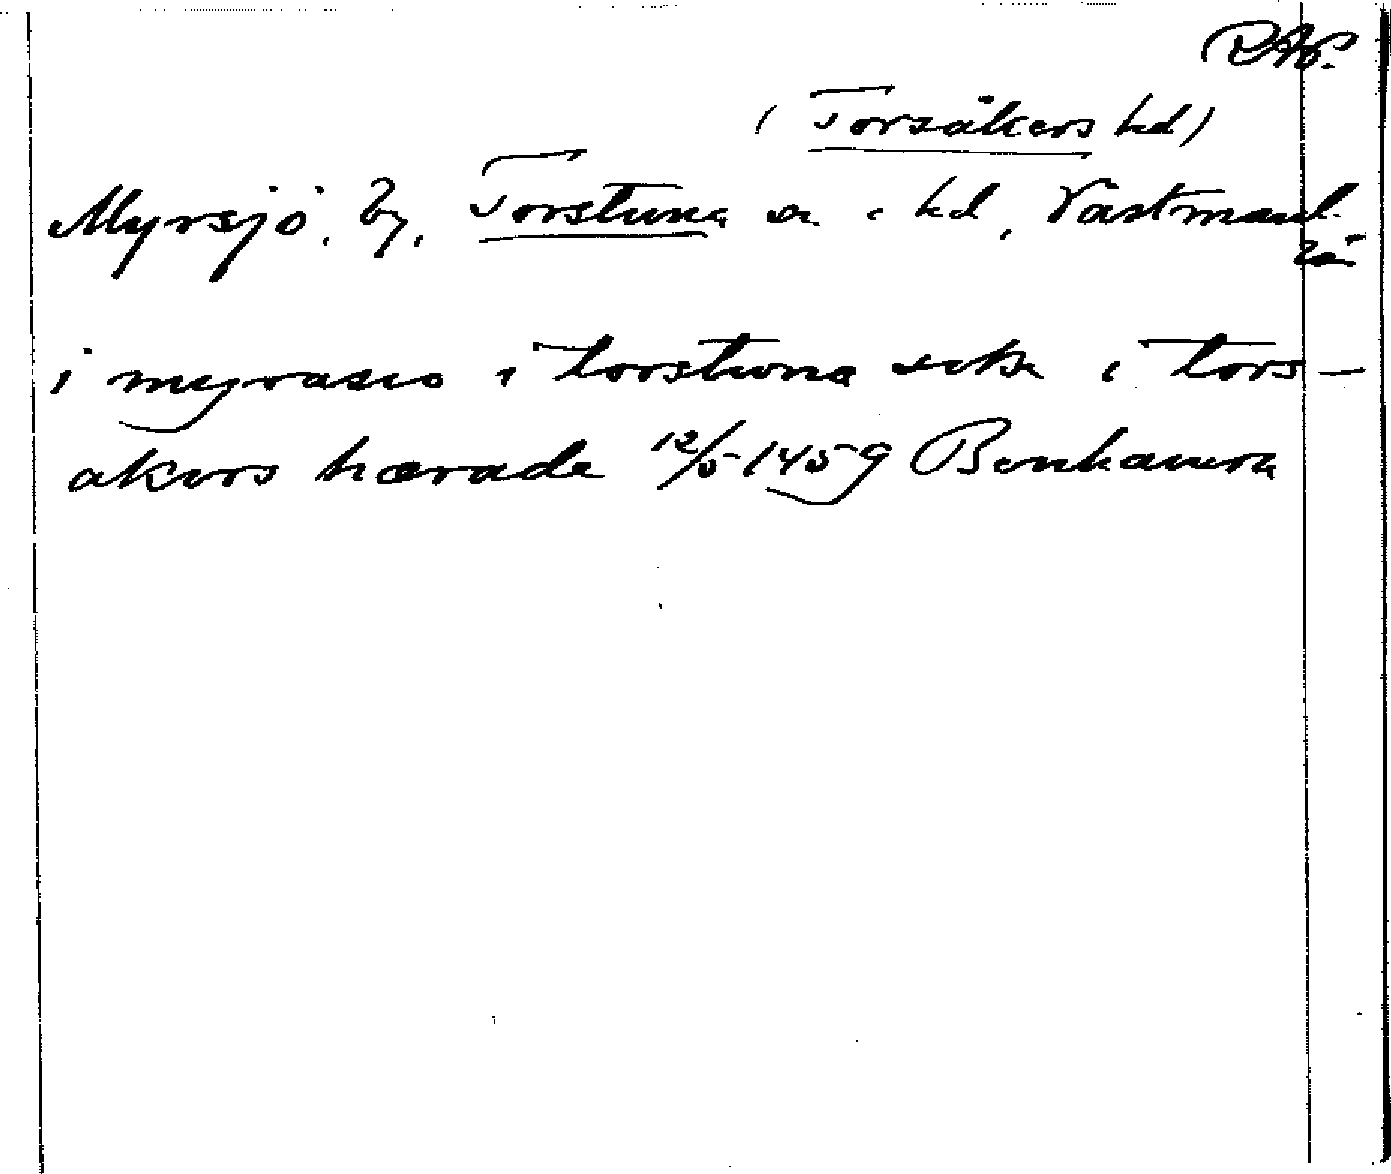 RAP.
(Torsåkers hd)
Myrsjö, by, Torstuna sn o hd, Västmanl.
i myrasio i torstuna sokn i tors-
akers hærade 12/5 1459